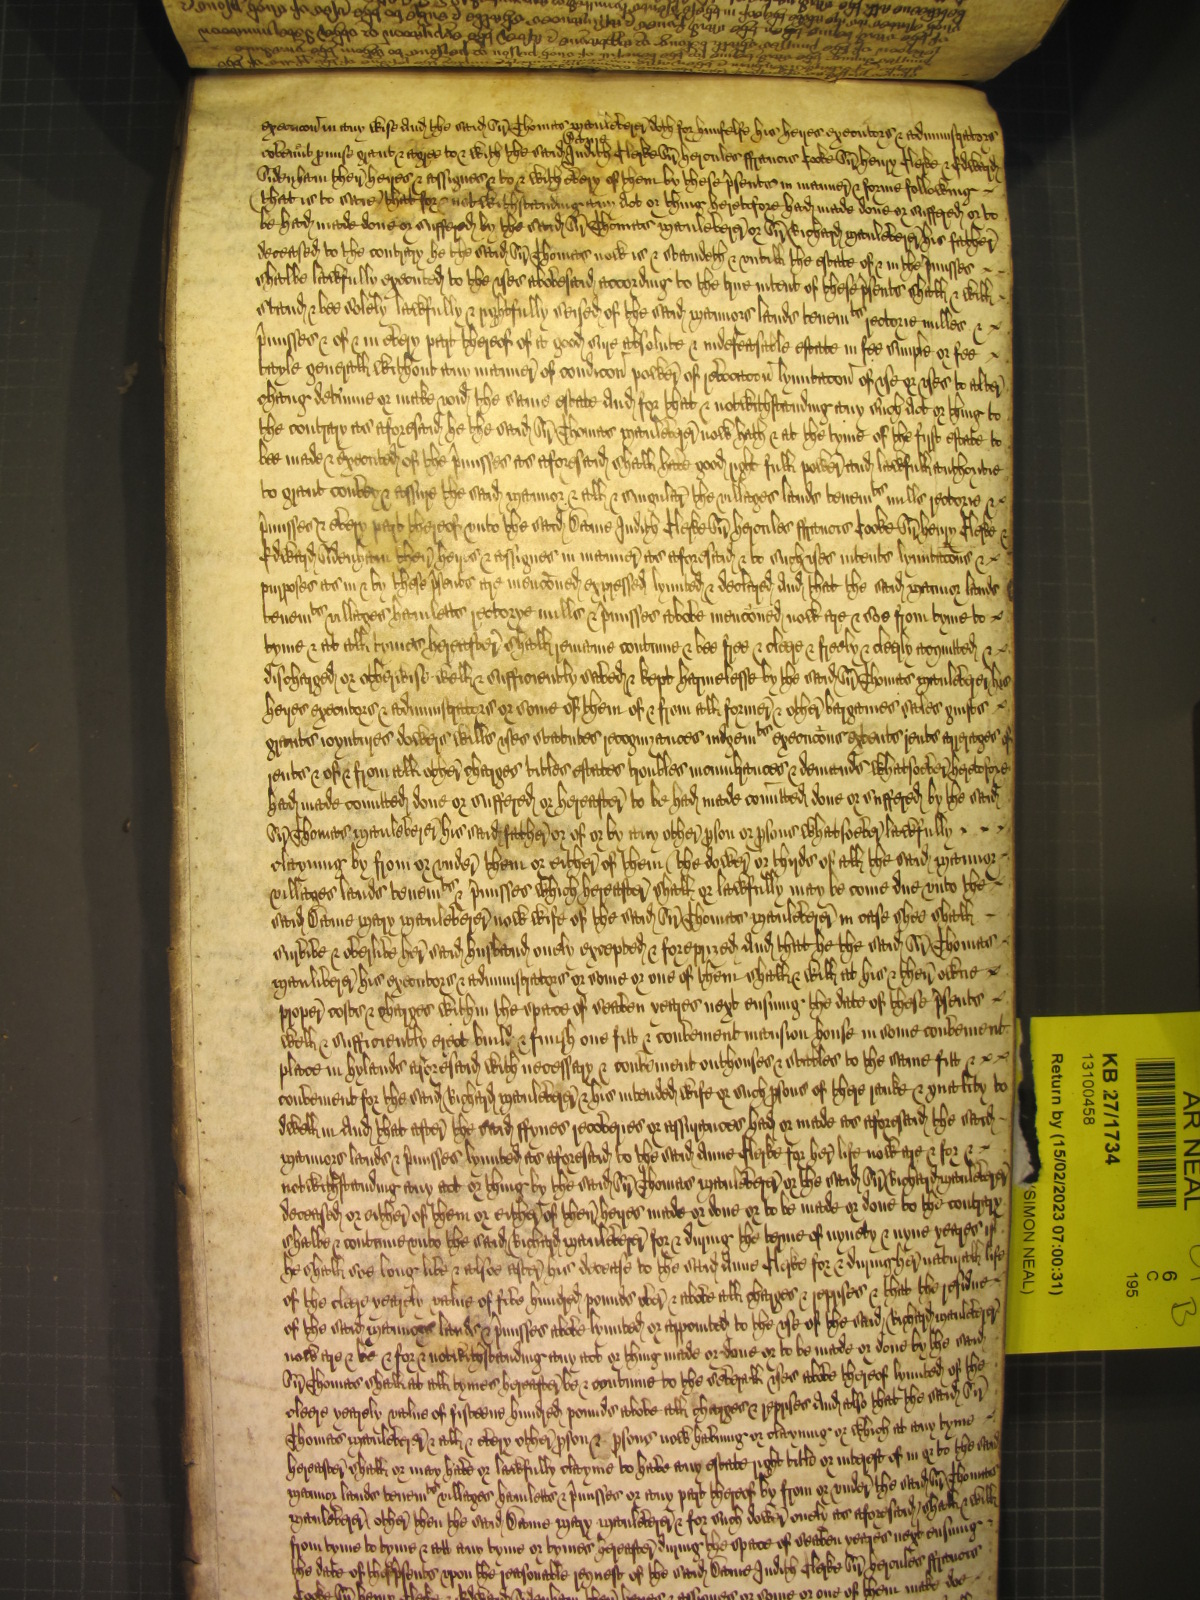 execucon in any wise And the said Sir Thomas Mauleverer doth for himselfe his heyres executors & administrators
Dame
covenant promise grant & agree to & with the said Judith Clerke Sir Hercules Francis Cooke Sir Henry Clerke & Edward
Sidenham their heyres & assignes & to & with every of them by these psents in manner & forme following
that is to saie that for & notwithstanding any Act or thing heretofore had made done or suffered or to
be had made done or suffered by the said Sir Thomas Mauleverer or Sir Richard Mauleverer his father
deceased to the contrary he the said Sir Thomas now is & standeth & untill the estate of & in the pmisses
shalbe lawfully executed to the uses abovesaid according to the true intent of these psents shall & will
stand & bee solely lawfully & rightfully seised of the said Mannors lands tenemts rectorie milles &
pmisses & of & in every part thereof of a good sure absolute & indefeasable estate in fee simple or fee
tayle generall without any manner of condicon power of revocacon lymitacon of use or uses to alter
chang determine or make void the same estate And for that & notwithstanding any such Act or thing to
the contrary as aforesaid he the said Sir Thomas Mauleverer now hath & at the tyme of the first estate to
bee made & executed of the pmisses as aforesaid shall have good right full power and lawfull authoritie
to grant convey & assure the said Mannor & all & singuler the villages lands tenemts mills rectorie &
pmisses & every part thereof unto the said Dame Judith Clerke Sir Hercules Francis Cooke Sir Henry Clerke &
Edward Sidenham their heyres & assignes in manner as aforesaid & to such uses intents lymitacons &
purposes as in & by these psents are menconed expressed lymited & declared And that the said Mannor lands
tenemts villages hamletts rectorye mills & pmisses above menconed now are & soe from tyme to
tyme & at all tymes hereafter shall remaine continue & bee free & cleere & freely & cleerly acquitted &
discharged or otherwise well & sufficiently saved & kept harmelesse by the said Sir Thomas Mauleverer his
heyres executors & administrators or some of them of & from all former & other bargaines sales guifts
grants ioyntures dowers wills uses statutes recognizances iudgemts execucons extents rents arrerages of
rents & of & from all other charges titles estates troubles incumbrances & demands whatsoever heretofore
had made comitted done or suffered or hereafter to be had made comitted done or suffered by the said
Sir Thomas Mauleverer his said father or of or by any other pson or psons whatsoever lawfully
clayming by from or under them or either of them (the dower or thirds of all the said Mannor
villages lands tenemts & pmisses which hereafter shall or lawfully may be come due unto the
said Dame Mary Mauleverer now wife of the said Sir Thomas Mauleverer in case shee shall
survive & overlive her said husband onely excepted & foreprized And that he the said Sir Thomas
Mauleverer his executors & administrators or some or one of them shall & will at his & their owne
proper costs & charges within the space of seaven yeares next ensuing the date of these psents
well & sufficiently erect build & finish one fitt & convenient mansion house in some convenient
place in Hylands aforesaid with necessary & convenient outhouses & stables to the same fitt &
convenient for the said Richard Mauleverer & his intended wife or such psons of there ranke & quality to
dwell in And that after the said ffynes recoveries or assurances had or made as aforesaid the said
Mannors lands & pmisses lymited as aforesaid to the said Anne Clerke for her life now are & for &
notwithstanding any act or thing by the said Sir Thomas Mauleverer or the said Sir Richard Mauleverer
deceased or either of them or either of their heyres made or done or to be made or done to the contrary
shalbe & continue unto the said Richard Mauleverer for & during the terme of nynety & nyne yeares if
he shall soe long live & alsoe after his decease to the said Anne Clerke for & during her naturall life
of the cleere yearely value of five hundred pounds over & above all charges & reprises & that the residue
of the said Mannors lands & pmisses above lymited or appointed to the use of the said Richard Mauleverer
now are & be & for & notwithstanding any act or thing made or done or to be made or done by the said
Sir Thomas shall at all tymes hereafter be & continue to the severall uses above thereof lymited of the
cleere yearely value of fifteene hundred pounds above all charges & reprises And also that the said Sir
Thomas Mauleverer & all & every other pson & psons now having or clayming or which at any tyme
hereafter shall or may have or lawfully clayme to have any estate right title or interest of in or to the said
Mannor lands tenemts villages hamletts & pmisses or any part thereof by from or under the said Sir Thomas
Mauleverer other then the said Dame Mary Mauleverer & for such dower onely as aforesaid shall & will
from tyme to tyme & att any tyme or tymes hereafter during the space of seaven yeares next ensuing
the date of these psents upon the reasonable request of the said Dame Judith Clerke Sir Hercules Francis
Cooke Sir Henry Clerke & Edward Sidenham their heyres & assignes or some or one of them make doe
AR NEAL
6
C
195
B
KB 27/1734
13100458
Return by (15/02/2023 07:00:31)
(SIMON NEAL)